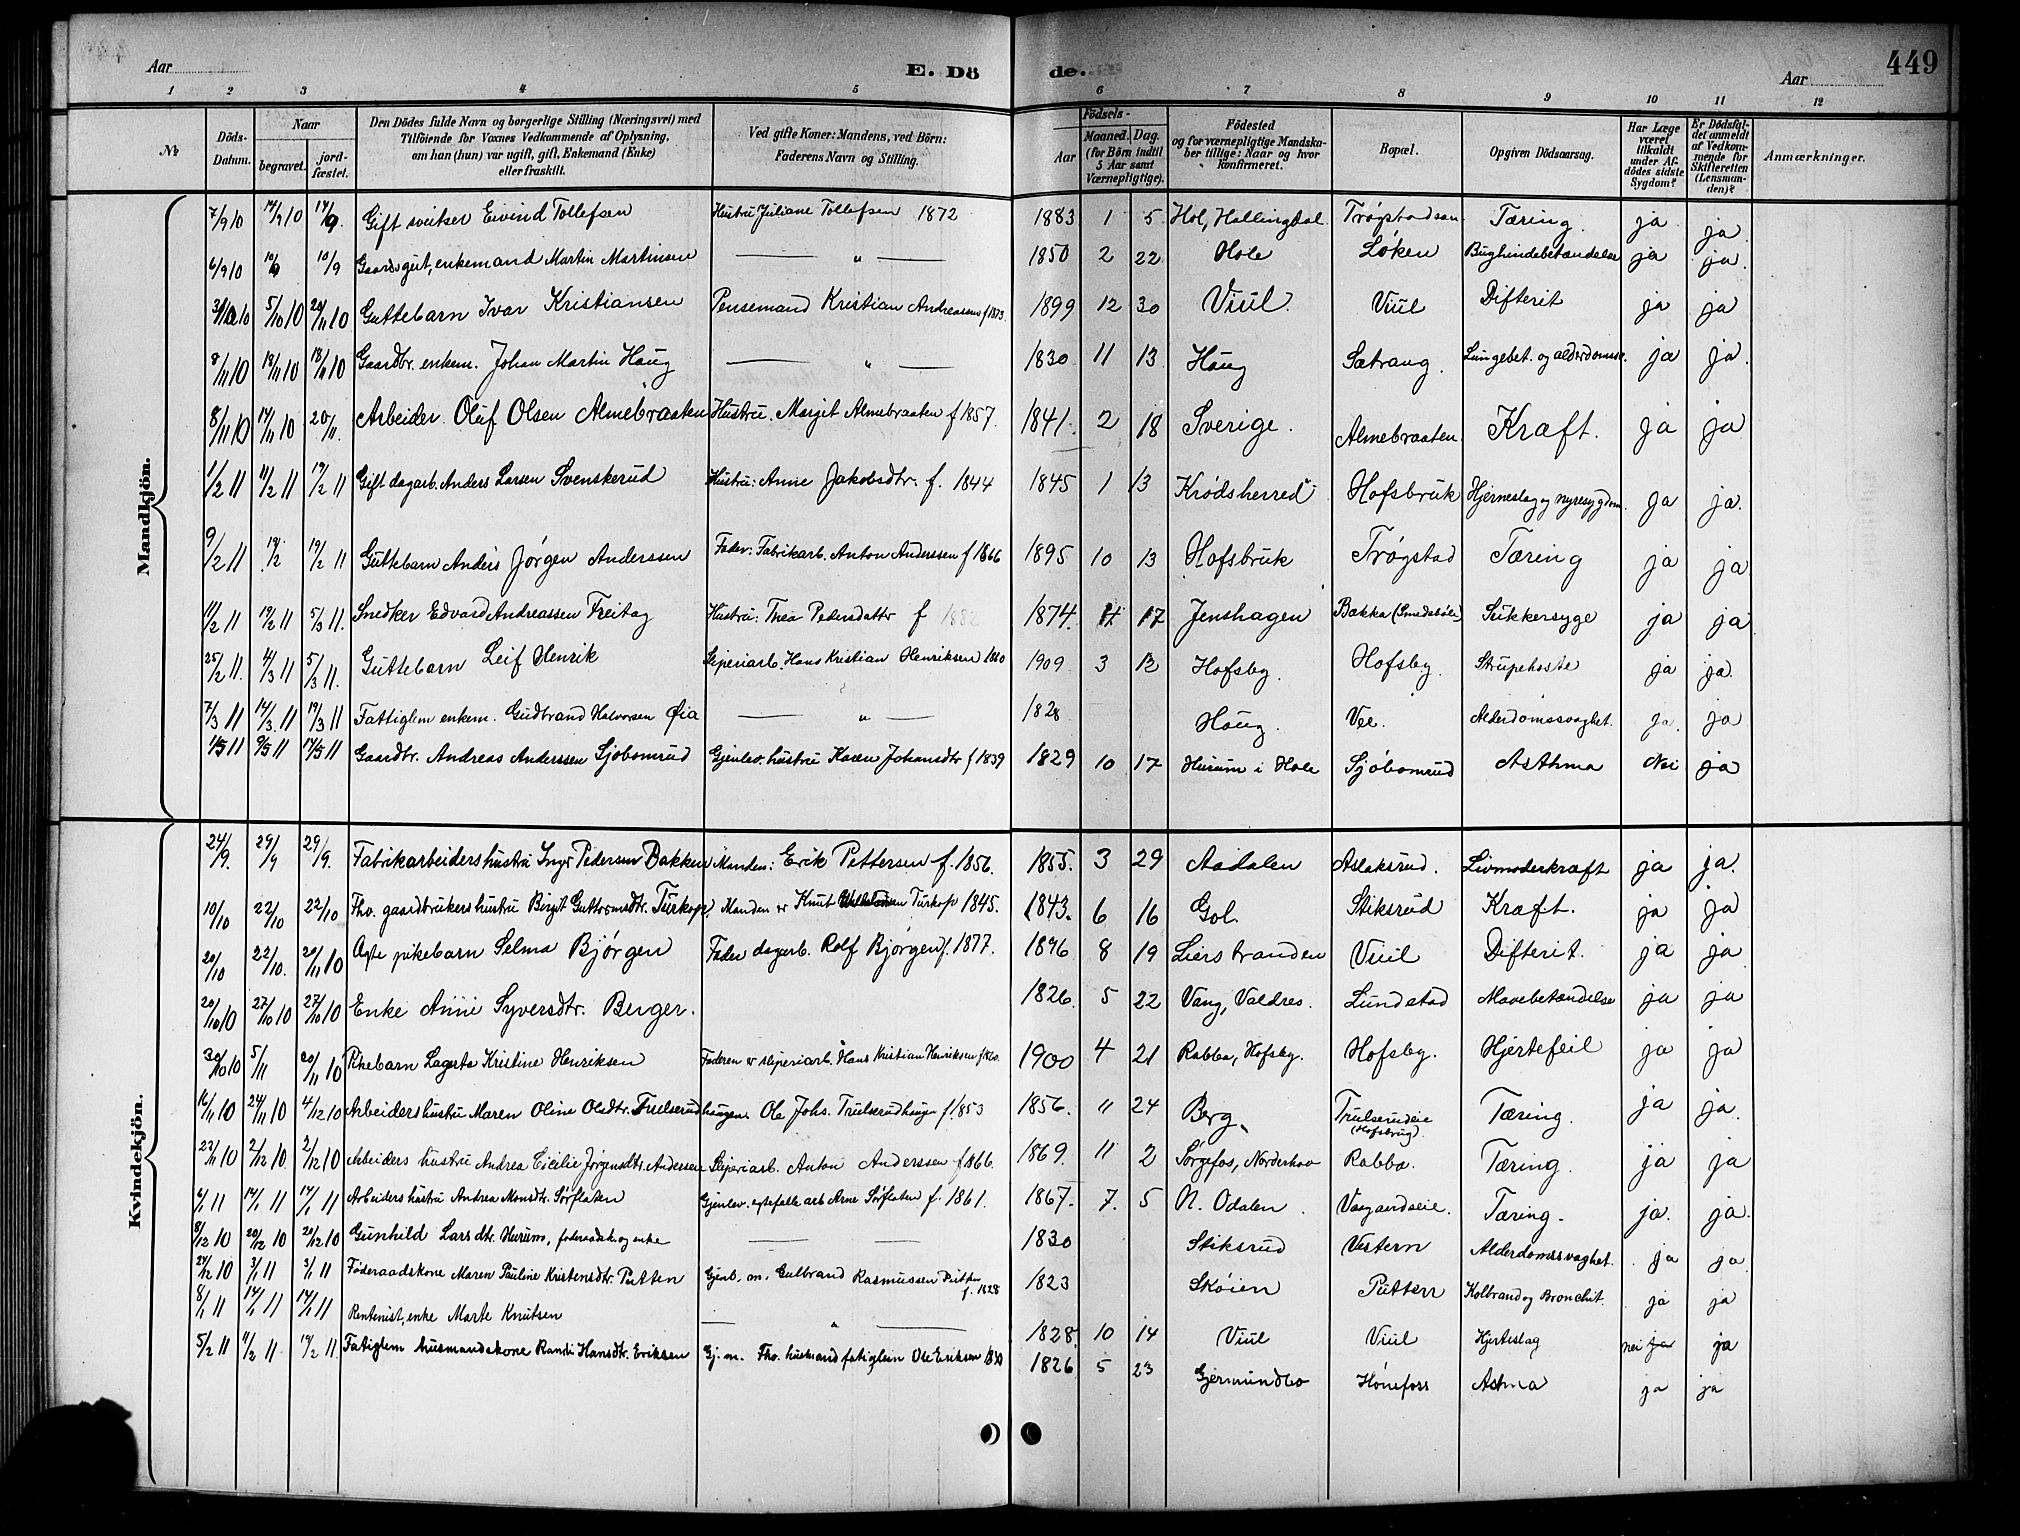 449
Aar
E. Dö
de.
Aar
1 2 3 4 5 6 7 8 9 10 11 12
No. Döds-Datum. Naar begravet. jord-fæstet. Den Dödes fulde Navn og borgerlige Stilling (Næringsvei) med Tilföiende for Voxnes Vedkommende af Oplysning, om han (hun) var ugift, gift, Enkemand (Enke) eller fraskilt. Ved gifte Koner: Mandens, ved Börn: Faderens Navn og Stilling. Födsels- Aar Maaned. Dag. (for Börn indtil 5 Aar samt Værnepligtige). Födested og for værnepligtige Mandska-ber tillige: Naar og hvor konfirmeret. Bopæl. Opgiven Dödsaarsag. Har Læge været tilkaldt under Af-dödes sidste Sygdom? Er Dödsfal-det anmeldt af Vedkom-mende for Skifteretten (Lensman-den)? Anmærkninger.
Mandkjön.
7/9 10 14/9 10 14/9. Gift sveitser Eivind Tollefsen Hustru Juliane Tollefsen 1872 1883 1 5 Hol, Hallingdal Tæring ja ja
6/9 10 10/9 10/9 Gaardsgut, enkemand Martin Martinsen — " — 1850 2 22 Hole Løken Bughindebetændelse ja ja.
5/10 10 20/11 10 Guttebarn Ivar Kristiansen Pensemand Kristian Andreassen f 1873. 1899 12 30 Viul. Viul Difterit ja ja
8/11 10 18/11 10 18/11 10 Gaardbr. enkem. Johan Martin Haug — " — 1830 11 13 Haug Sætrang. Lungebet. og alderdomss. ja ja.
8/11 10 17/11 10 20/11. Arbeider Oluf Olsen Almebraaten Hustru. Margit Almebraaten f 1857. 1841. 2 18 Sverige. Almebraaten Kræft. ja ja
1/2 11 11/2 11 19/2 11 Gift dagarb. Anders Larsen Svenskerud Hustru: Anne Jakobsdtr. f. 1844 1845 1 13 Krødsherred Hofsbruk Hjerneslag og nyresygdom ja ja.
9/2 11 19/2 19/2 11 Guttebarn Anders Jørgen Anderssen Fader: Fabrikarb. Anton Anderssen f 1866 1895 10 13 Hofsbruk Trøgstad Tæring ja ja
11/2 11 19/2 11 5/3 11. Snedker Edvard Andreassen Freitag Hustru: Thea Pedersdatter f 1882 1874. 17 Jenshagen Bækka (Smedsbøle) Sukkersyge ja ja
25/2 11. 4/3 11 5/3 11. Guttebarn Leif Henrik Sliperiarb. Hans Kristian Henriksen 1860 1909 3 12 Hofsby. Hofsby. Strupehoste ja ja.
7/3 11 14/3 11 19/3 11 Fattiglem enkem. Gudbrand Halvorsen Øia — " — 1828 Haug. Vee. Alderdomssvaghet. ja. ja
1/5 11 9/5 11 14/5 11 Gaardbr. Andreas Anderssen Sjøbomrud Gjenlev. hustru Karen Johansdtr f 1839 1829 10 17 Hurum i Hole Sjøbomrud Asthma Nei ja
Kvindekjön.
24/9. 29/9 29/9. Fabrikarbeiders hustru Pedersen Bakken Manden: Erik Pettersen f. 1856. 1855. 3 29 Aadalen Aslaksrud. Livmoderkræft ja ja.
10/10 22/10 22/10 Fho. gaardbrukers hustru Birgit Guttormsdtr. Turkop, Manden er Knut Turkop 1845. 1843. 6 16 Gol. Stiksrud Kræft. ja ja
20/10 22/10. 20/11 10 Ægte pikebarn Selma Bjørgen Fader dagarb. Rolf Bjørgen f. 1877. 1896 8 19 Lierstranden Viul Difterit. ja ja
20/10 10 27/10 10 27/10 10 Enke Anne Syversdtr. Berger. 1826. 5 22 Vang, Valdres. Lundstad Mavebetændelse ja ja
30/10 10 5/11 20/11 10 Pikebarn Lagerta Kristine Henriksen Faderen er sliperiarb. Hans Kristian Henriksen 1900 4 21 Rabba, Hofsby. Hofsby. Hjertefeil ja ja
16/11 10 24/11 10 4/12 10 Arbeiders hustru Maren Oline Olsdtr. Trulserudhaugen. Ole Johs. Trulserudhaugen f. 1853 1856. 11 24 Berg. Trulserudeie (Hofsbrug). Tæring. ja ja.
23/11 10 2/12 10 2/12 10 Arbeiders hustru Andrea Cicilie Jørgensdtr. Andersen Sliperiarb. Anton Anderssen f 1866. 1869. 11 2 Sørgefos, Norderhov Rabba. Tæring. ja ja
6/1 11 14/1 11 14/1 11 Arbeiders hustru Andrea Monsdtr. Sørflaten Gjenlev. egtefælle arb Arne Sørflaten f. 1861. 1867. 7. 5 N. Odalen. Tæring. ja. ja.
8/12 10 20/12 10 20/12 10 Gunhild Larsdtr. Hurum, føderaadsk og enke — — 1830 Stiksrud Vestern Alderdomssvaghet. ja ja
24/12 10 3/1 11 3/1 11 Føderaadskone Maren Pauline Kristensdtr. Putten Gjenl. m. Gulbrand Rasmussen Putten f. 1828 1823 Skøien Putten Koldbrand og Bronchit. ja ja
8/1 11 14/1 11 14/1 11 Rentenist, enke Marte Knutsen — " — 1828 10 14 Viul Viul Hjerteslag nei ja ja
5/2 11 11/2 11 19/2 11 Fatiglem husmandskone Randi Hansdtr. Eriksen Gj. m. Fho. husmand fatiglem Ole Eriksen 1826 5 23 Gjermundbo Hønefoss Astma ja ja